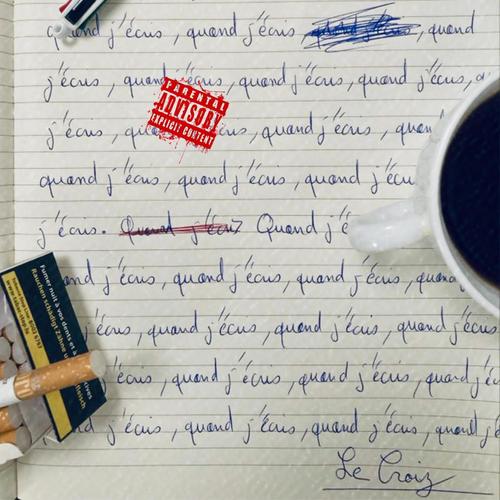 quand j'écris, quand j'écris quand j'écris, quand
j'écris, quand j'écris, quand j'écris, quand j'écris, q
PARENTAL
ADVISORY
EXPLICIT CONTENT
j'écris, quand j'écris, quand j'écris, quand
quand j'écris, quand j'écris, quand j'écris
j'écris. Quand j'écris Quand j'é
quand j'écris, quand j'écris, quand j'écris, quand
j'écris, quand j'écris, quand j'écris, quand j'écris
j'écris, quand j'écris, quand j'écris, quand j'é
quand j'écris, quand j'écris, quand j'écris, quand j'
Fumer nuit à vos dents et à
Rauchen schädigt Zähne
Le Croiz